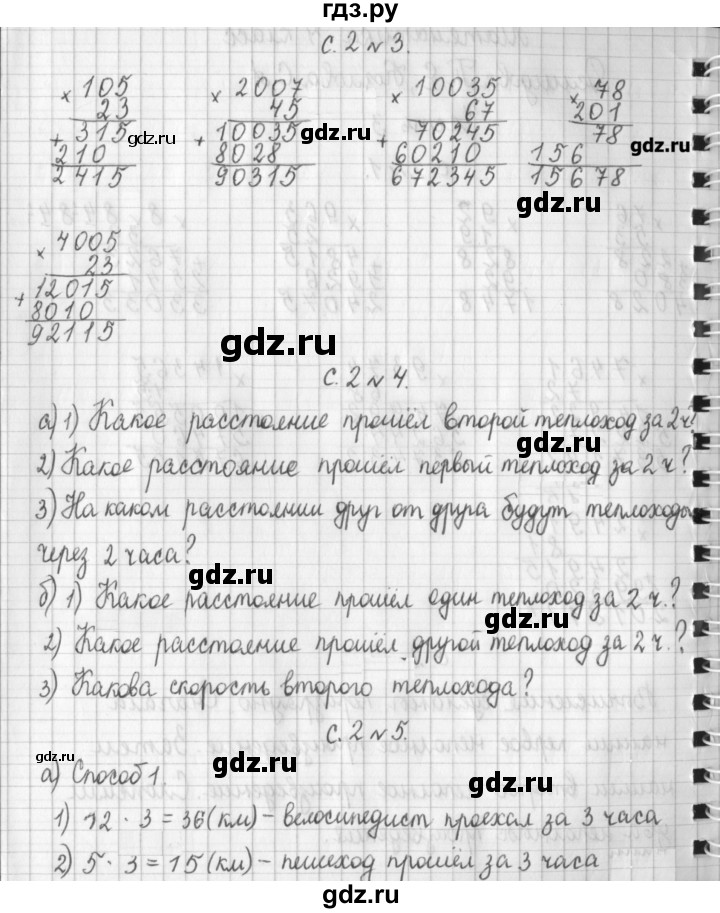 гдз.ру
с. 2 № 3.
× 105
23
+ 315
210
2415
× 2007
45
+ 10035
8028
90315
× 10035
67
+ 70245
60210
672345
× 78
201
78
156
15678
× 4005
23
+ 12015
8010
92115
gdz.ru
gdz.ru
gdz.ru
gdz.ru
gdz.ru
gdz.ru
с. 2 № 4.
а) 1) Какое расстояние прошёл второй теплоход за 2 ч?
gdz.ru
2) Какое расстояние прошёл первый теплоход за 2 ч?
3) На каком расстоянии друг от друга будут теплоходы
gdz.ru
через 2 часа?
gdz.ru
б) 1) Какое расстояние прошёл один теплоход за 2 ч.?
gdz.ru
2) Какое расстояние прошёл другой теплоход за 2 ч.?
3) Какова скорость второго теплохода?
с. 2 № 5.
gdz.ru
gdz.ru
gdz.ru
а) Способ 1.
1) 12 · 3 = 36 (км) – велосипедист проехал за 3 часа
2) 5 · 3 = 15 (км) – пешеход прошёл за 3 часа
gdz.ru
gdz.ru
гдз.ру